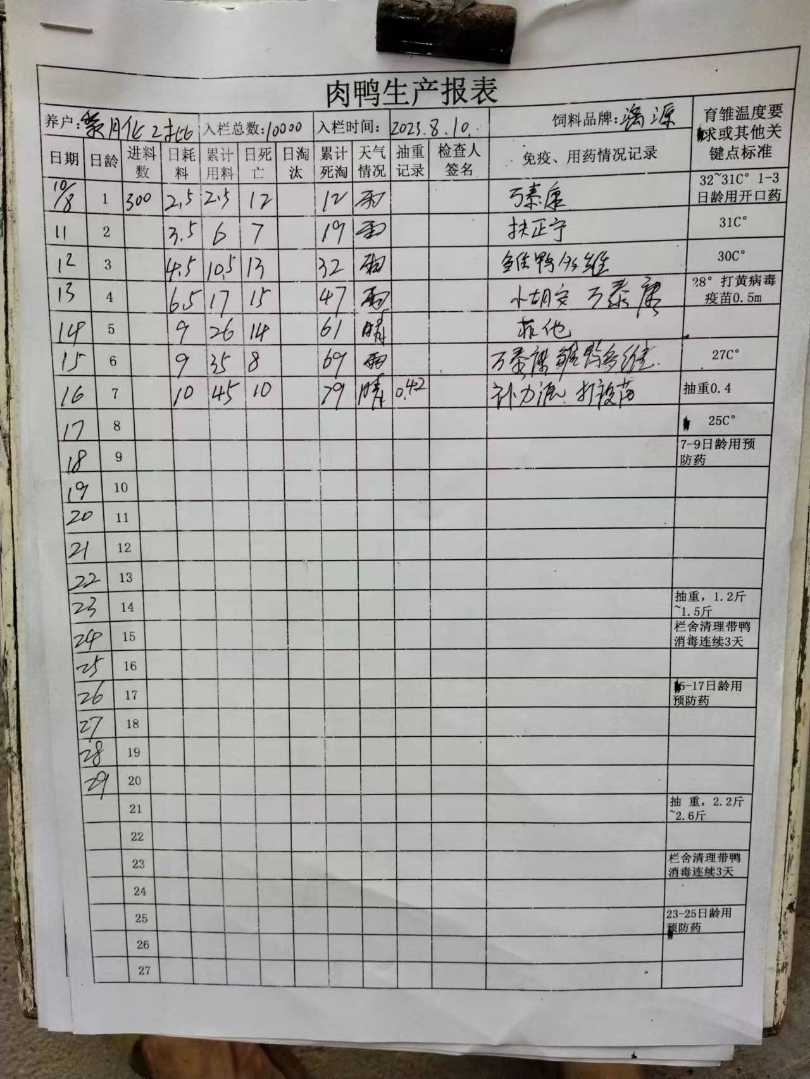 肉鸭生产报表
养户: 入栏总数:10000 入栏时间: 2023.8.10. 饲料品牌: 源 育雏温度要求或其他关键点标准
日期 日龄 进料数 日耗料 累计用料 日死亡 日淘汰 累计死淘 天气情况 抽重记录 检查人签名 免疫、用药情况记录
10/8 1 300 2.5 2.5 12 12 雨 万泰康 32~31C° 1-3日龄用开口药
11 2 3.5 6 7 19 雨 扶正宁 31C°
12 3 4.5 10.5 13 32 雨 雏鸭多维 30C°
13 4 6.5 17 15 47 雨 万泰康 28° 打黄病毒疫苗0.5m
14 5 9 26 14 61 晴
15 6 9 35 8 69 雨 万泰康 雏鸭多维 27C°
16 7 10 45 10 79 晴 0.42 打疫苗 抽重0.4
17 8 25C°
18 9 7-9日龄用预防药
19 10
20 11
21 12
22 13
23 14 抽重，1.2斤~1.5斤
24 15 栏舍清理带鸭消毒连续3天
25 16
26 17 5-17日龄用预防药
27 18
28 19
29 20
21 抽 重，2.2斤~2.6斤
22
23 栏舍清理带鸭消毒连续3天
24
25 23-25日龄用预防药
26
27